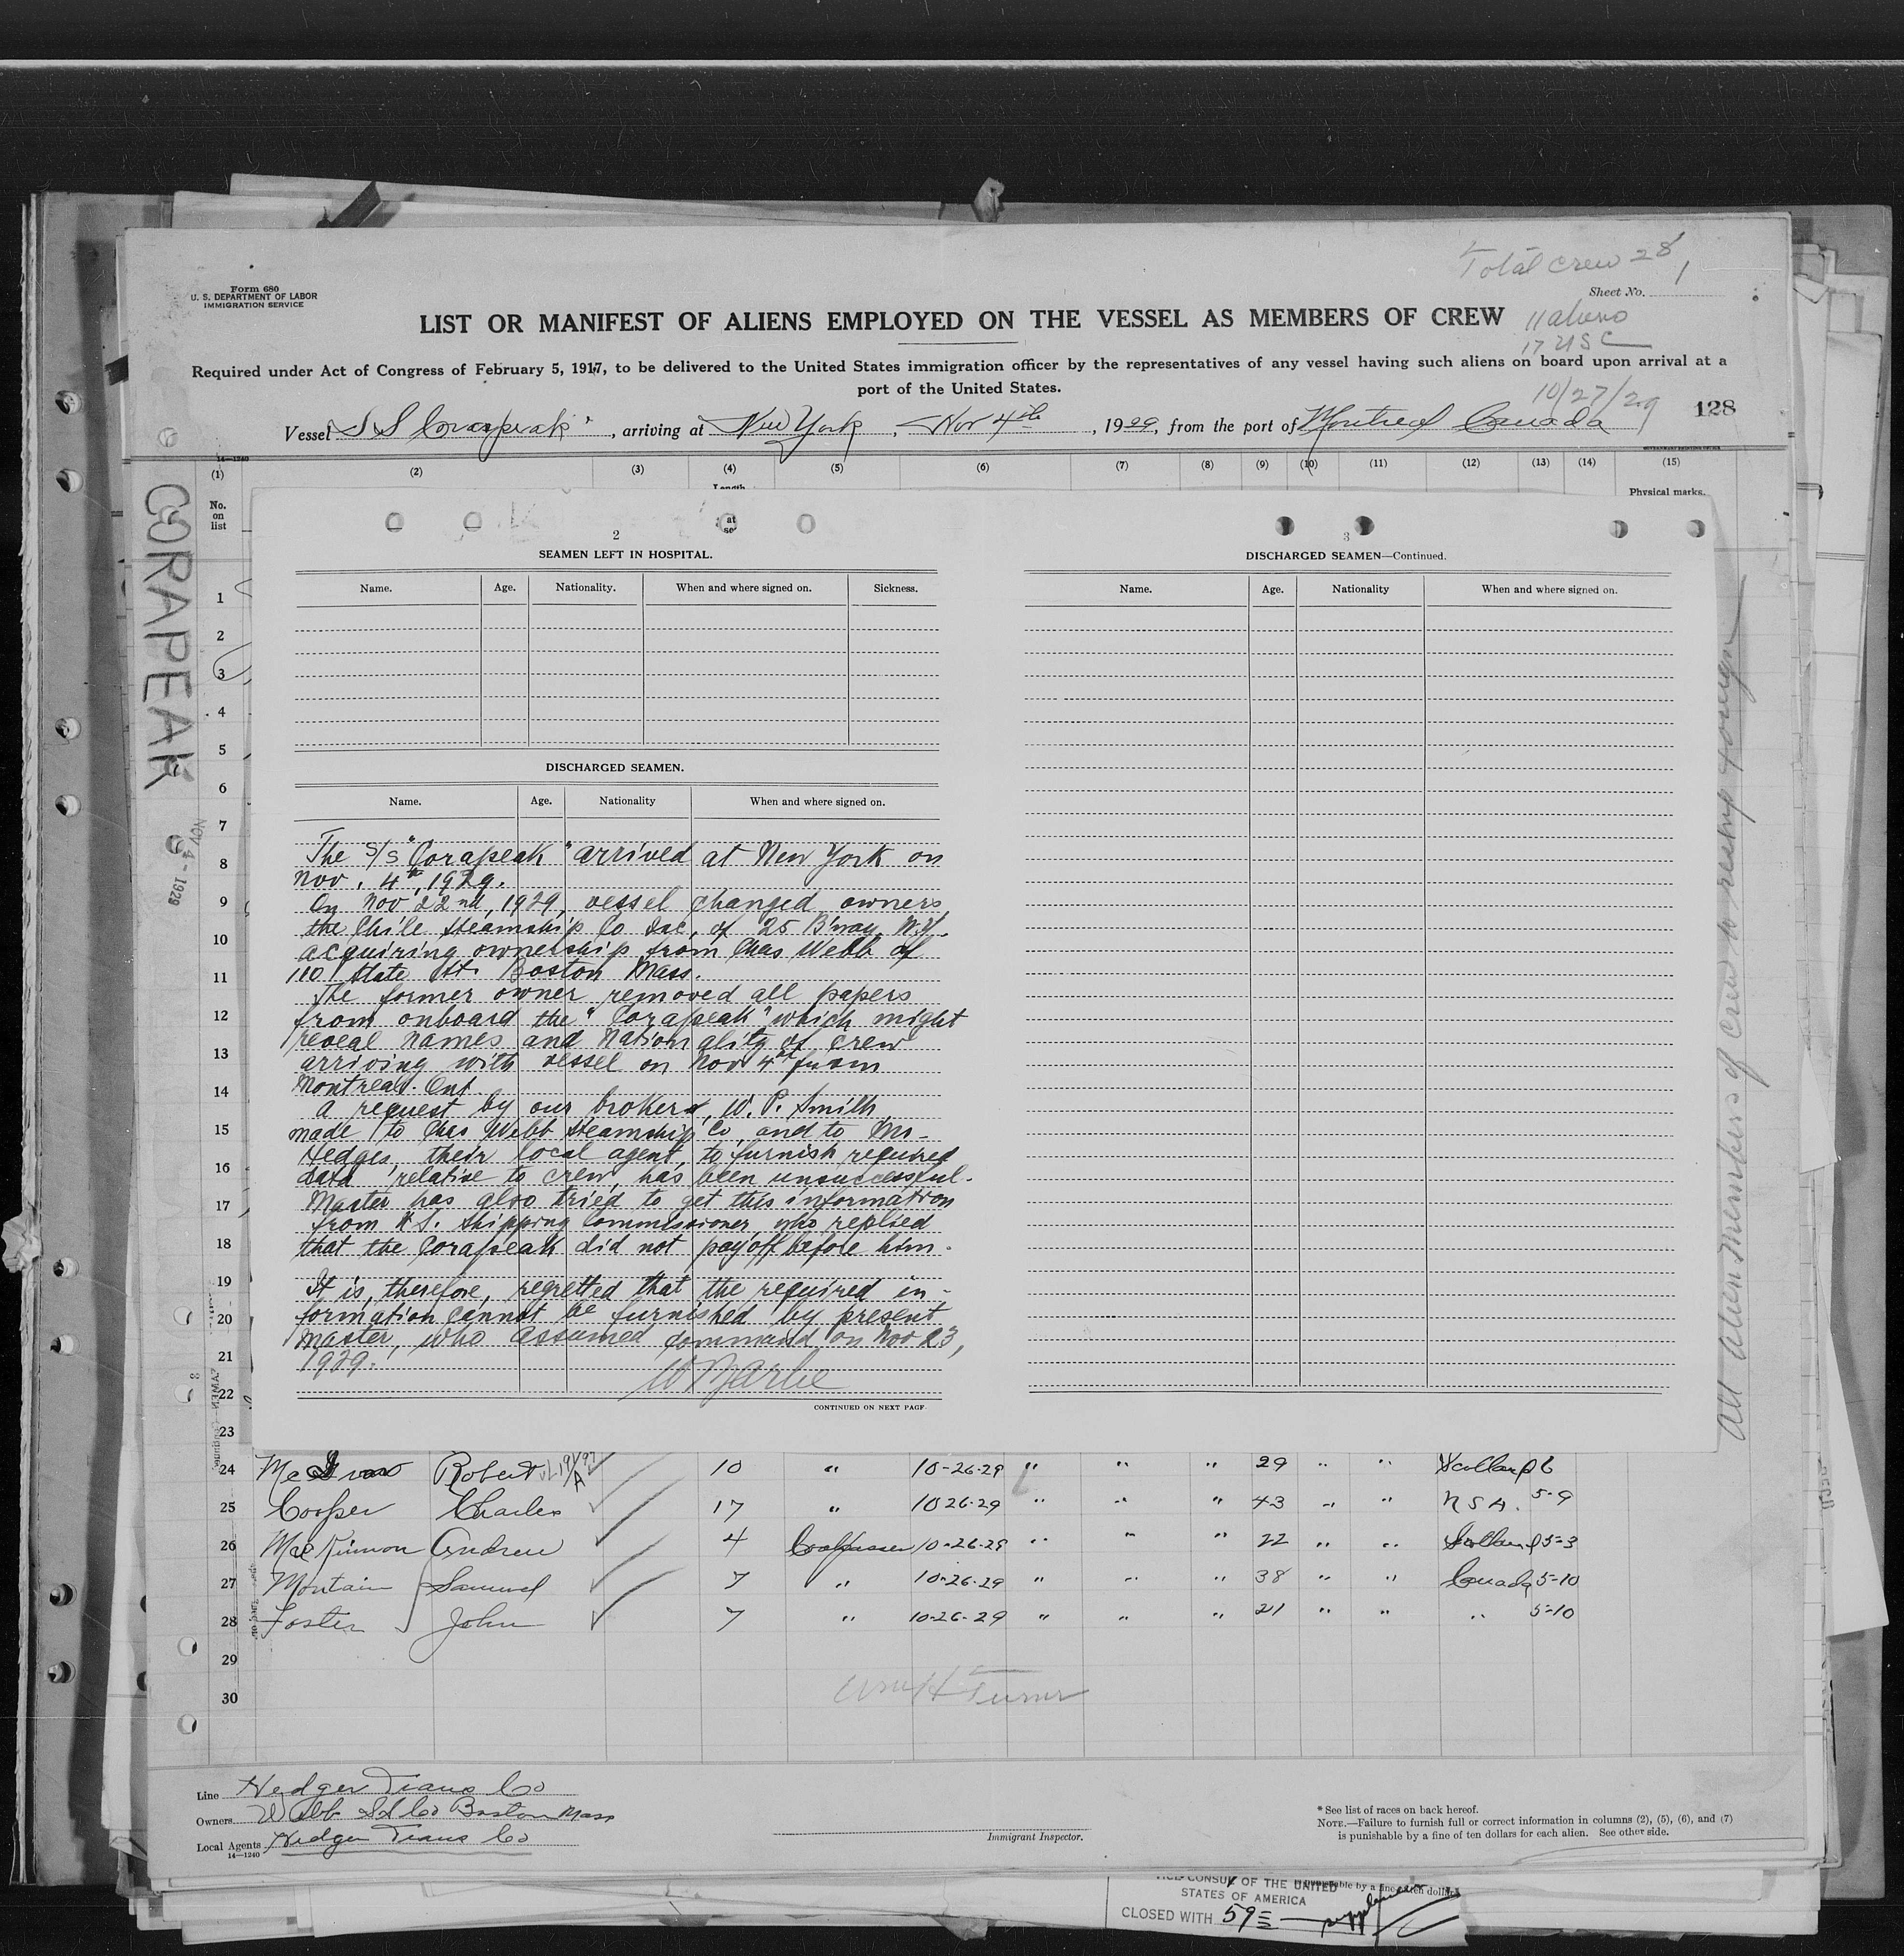 Total crew 28
Form 680
U. S. DEPARTMENT OF LABOR
IMMIGRATION SERVICE
Sheet No. 1
LIST OR MANIFEST OF ALIENS EMPLOYED ON THE VESSEL AS MEMBERS OF CREW
11 aliens
17 USC
Required under Act of Congress of February 5, 1917, to be delivered to the United States immigration officer by the representatives of any vessel having such aliens on board upon arrival at a
port of the United States.
10/27/29
128
Vessel S S Corapeak, arriving at New York, Nov 4th, 1929, from the port of Montreal Canada
14—1240
(1) (2) (3) (4) (5) (6) (7) (8) (9) (10) (11) (12) (13) (14) (15)
Length
Physical marks.
No.
on
list
CORAPEAK
NOV 4 - 1929
2
SEAMEN LEFT IN HOSPITAL.
Name. Age. Nationality. When and where signed on. Sickness.
DISCHARGED SEAMEN.
Name. Age. Nationality When and where signed on.
The S/S "Corapeak" arrived at New York on
Nov. 4th, 1929.
On Nov 22nd, 1929, vessel changed owners
the Chile Steamship Co Inc, of 25 B'way, N.Y.
acquiring ownership from Chas Webb of
110 State St. Boston Mass.
The former owner removed all papers
from onboard the "Corapeak" which might
reveal names and nationality of crew
arriving with vessel on Nov 4th from
Montreal. Ont
A request by our brokers, W. P. Smith,
made to Chas Webb Steamship Co, and to Mr.
Hedges, their local agent, to furnish required
data relative to crew, has been unsuccessful.
Master has also tried to get this information
from U.S. Shipping Commissioner, who replied
that the Corapeak did not pay off before him.
It is, therefore, regretted that the required in-
formation cannot be furnished by present
master, who assumed command on Nov 23,
1929.
CONTINUED ON NEXT PAGE
3
DISCHARGED SEAMEN—Continued.
Name. Age. Nationality When and where signed on.
All alien members of crew to reship foreign
1
2
3
4
5
6
7
8
9
10
11
12
13
14
15
16
17
18
19
20
21
22
23
24 Robert 10 " 10-26-29 " " " 29 " " Scotland 6
25 Cooper Charles 17 " 10 26-29 " " " 43 " " 5-9
26 MacKinnon Andrew 4 10-26-29 " " " 22 " " Scotland 5-3
27 Montain Samuel 7 " 10-26-29 " " " 38 " " Canada 5-10
28 Foster John 7 " 10-26-29 " " " 21 " " " 5-10
29
30
Wm H Turner
Line Hedger Trans Co
Owners Webb SS Co Boston Mass
Local Agents Hedger Trans Co
14—1240
Immigrant Inspector.
* See list of races on back hereof.
NOTE.—Failure to furnish full or correct information in columns (2), (5), (6), and (7)
is punishable by a fine of ten dollars for each alien. See other side.
VICE CONSUL OF THE UNITED
STATES OF AMERICA
CLOSED WITH 59